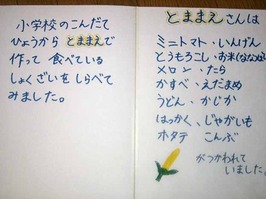 小学校のこんだて
ひょうから とままえで
作って 食べている
しょくざいを しらべて
みました。
とままえさんは
ミニトマト・いんげん
とうもろこし・お米(ななつぼし)
メロン・たら
かすべ・えだまめ
うどん・かじか
はっかく、じゃがいも
ホタテ こんぶ
がつかわれて
いました。